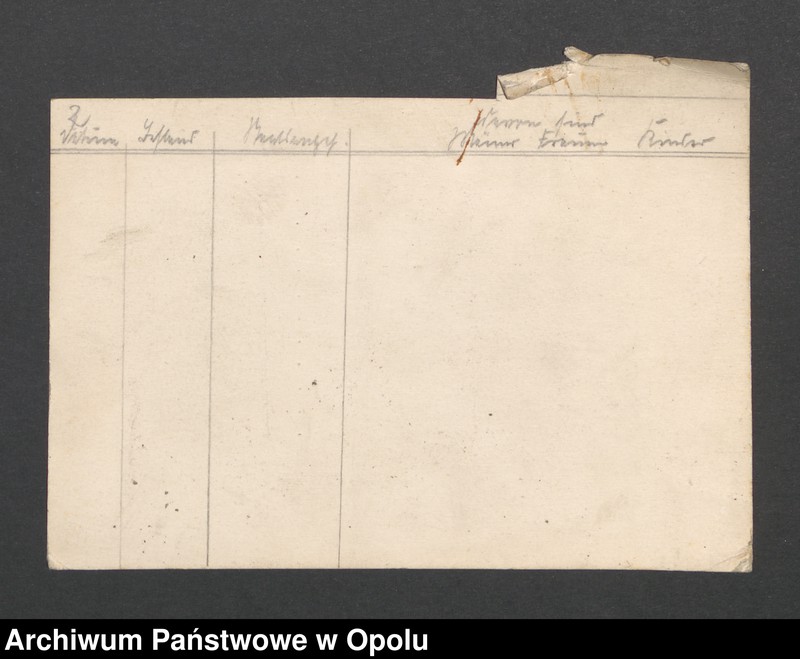 Davon sind
Datum Bestand Männer Frauen Kinder
Archiwum Państwowe w Opolu